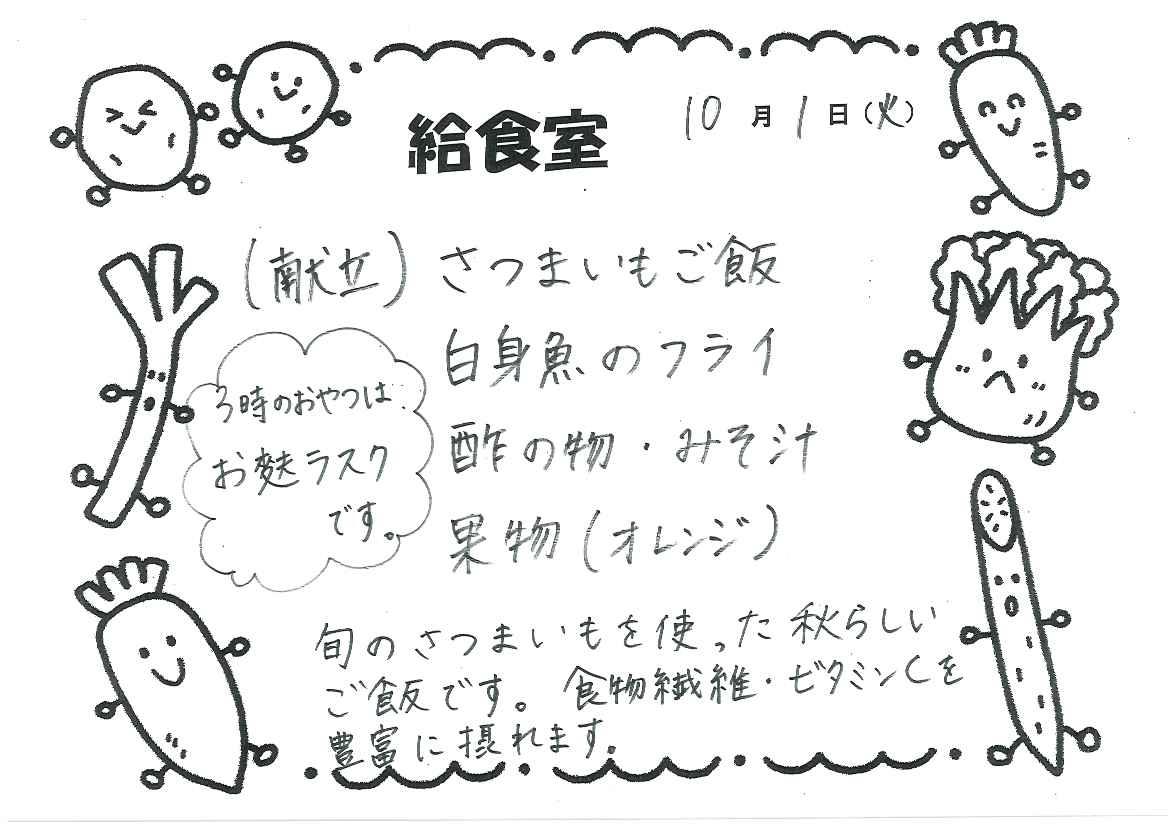 給食室
10月1日(火)
(献立) さつまいもご飯
白身魚のフライ
酢の物・みそ汁
果物(オレンジ)
3時のおやつは
お麩ラスク
です。
旬のさつまいもを使った秋らしい
ご飯です。食物繊維・ビタミンCを
豊富に摂れます。